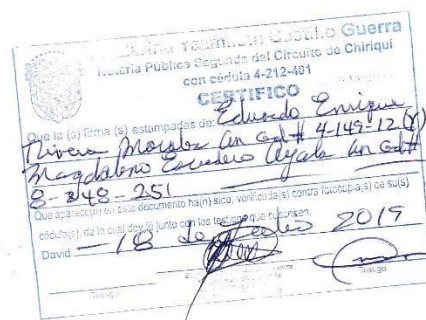 Yasmin Castillo Guerra
Notaría Pública Segunda del Circuito de Chiriquí
con cédula 4-212-401
CERTIFICO
Que la (s) firma (s) estampadas de: Eduardo Enrique
Rivera Morales con ced # 4-149-12 (Y)
Magdaleno Escudero Ayala con ced#
8-248-251
Que aparece(n) en este documento ha(n) sido, verificada(s) contra fotocopia(s) de su(s)
cédula(s), de lo cual doy fe junto con los testigos que suscriben.
David 18 de 2019
Testigo Testigo